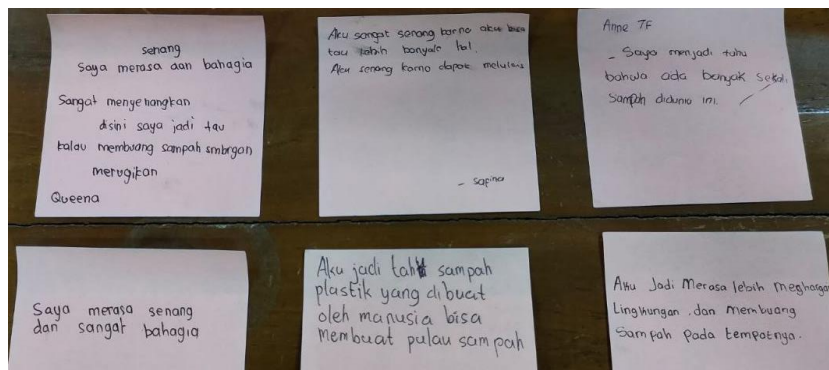 senang
Saya merasa dan bahagia
Sangat menyenangkan
disini saya jadi tau
kalau membuang sampah smbrgan
merugikan
Queena
Aku sangat senang karno akus bisa
tau lebih banyak hal.
Aku senang karno dapat melukis
- safina
Anne 7F
- Saya menjadi tahu
bahwa ada banyak sekali
Sampah didunia ini.
Saya merasa senang
dan sangat bahagia
Aku jadi tah sampah
plastik yang dibuat
oleh manusia bisa
membuat pulau sampah
Aku Jadi Merasa lebih megharga
Lingkungan . dan membuang
Sampah Pada tempatnya.